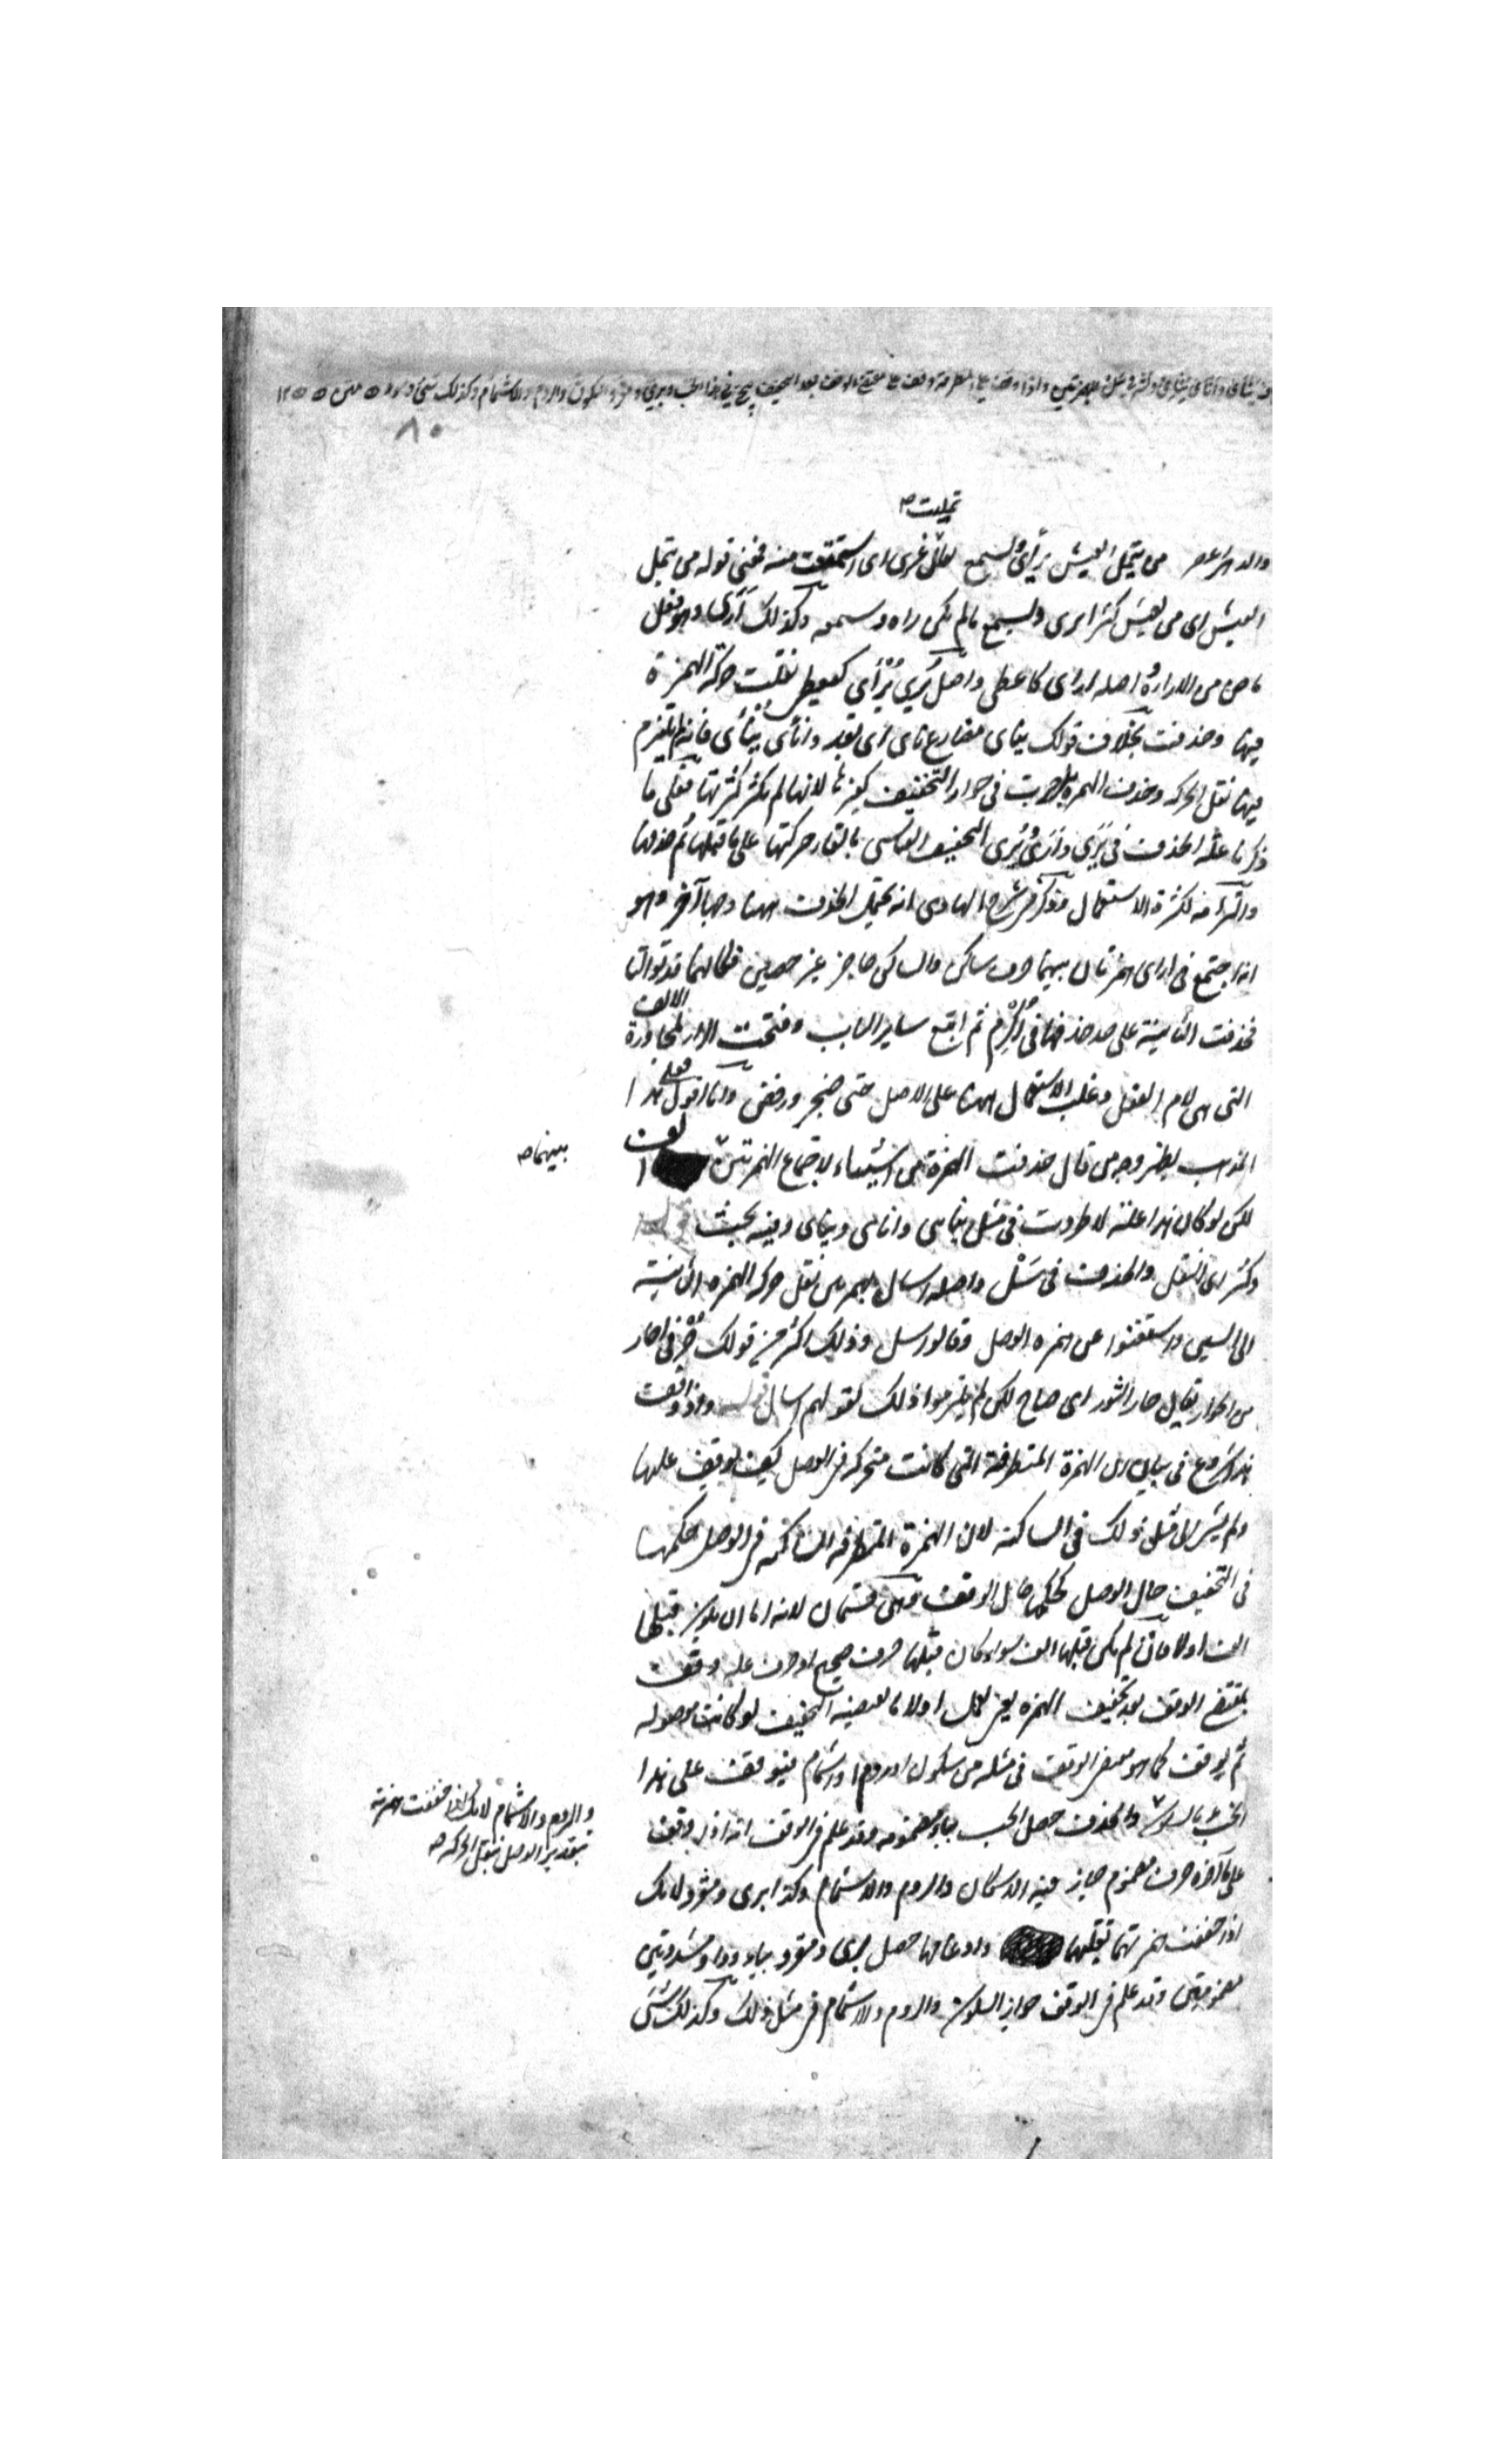 ينأى وأنأى ينئي وكثر في سل للهمزتين وإذا وقف على المتطرفة وقف بمقتضى الوقف بعد التخفيف فيجيء في هذا الخب وبري ومقرو السكون والروم والاشمام وكذلك شيء وسوء
٨٠
تمليت صح
والدهر اعصر من يتمل العيش يرأى ويسمع تملى عمرى اى استمتعت منه فمعنى قوله من يتمل
العيش اى من يعيش كثيرا يرى ويسمع ما لم يكن راه وسمعه وكذلك أرى وهو فعل
ماض من الاراءة اصله ارأى كاعطى واصل يُرِي يُرْئِي كيعطى نقلت حركة الهمزة
فيهما وحذفت بخلاف قولك ينأى مضارع نأى اى بعد وانأى ينئى فانه لم يلتزم
فيهما نقل الحركة وحذف الهمزة بل جرت فى جواز التخفيف كغيرها لانها لم يكثر كثرتها فعلى ما
ذكرنا علة الحذف فى يَرَى وأَرَى ويُرِى التخفيف القياسى بالقاء حركتها على ما قبلها ثم حذفها
والتزامه لكثرة الاستعمال وذكر فى شرح الهادى انه يحتمل الحذف ههنا وجها آخر وهو
انه اجتمع فى ارأى همزتان بينهما حرف ساكن والساكن حاجز غير حصين فكانهما قد توالتا
فحذفت الثانية على حد حذفها فى أُكْرِم ثم اتبع ساير الباب وفتحت الراء لمجاورة الالف
التى هى لام الفعل وغلب الاستعمال ههنا على الاصل حتى هجر ورفض وانا اقول فعلى هذا
المذهب يظهر وجه من قال حذفت الهمزة من اشيياء لاجتماع الهمزتين بينهما صح الف
لكن لو كان هذا علته لاطردت فى مثل ينأى وانأى وينأى وفيه بحث قوله
وكثر اى النقل والحذف فى سَلْ واصله اسأل بهمزتين نقل حركة الهمزة الثانية
الى السين واستغنوا عن همزة الوصل وقالوا سل وذلك اكثر من قولك جَرْ فى اجأر
من الجوار يقال جار الثور اى صاح لكن لم يلتزموا ذلك لقولهم اسأل قوله واذا وقفت
هذا شروع فى بيان ان الهمزة المتطرفة التى كانت متحركة فى الوصل كيف يوقف عليها
ولم يشر الى مثل ذلك فى الساكنة لان الهمزة المتطرفة الساكنة فى الوصل حكمها
فى التخفيف حال الوصل كحكمها حال الوقف وهى قسمان لانه اما ان يكون قبلها
الف اولا فان لم يكن قبلها الف سواء كان قبلها حرف صحيح او حرف علة وقفت
بمقتضى الوقف بعد تخفيف الهمزة يعنى يعمل اولا ما يقتضيه التخفيف لو كانت موصولة
ثم يوقف كما هو مقتضى الوقف فى مثله من سكون او روم او اشمام فيوقف على هذا
الخبء بالسكون والروم والاشمام لانك اذا خففت همزته
بتقدير الوصل بنقل الحركة صح
والحذف حصل الخب بباء مضمومة وقد علم فى الوقف انه اذا وقف
على ما آخره حرف مضموم جاز فيه الاسكان والروم والاشمام وكذا برى ومقرو لانك
اذا خففت همزتهما بقلبها وادغامها حصل برى ومقرو بياء وواو مشددتين
مضمومتين وقد علم فى الوقف جواز السكون والروم والاشمام فى مثل ذلك وكذلك شَىّ